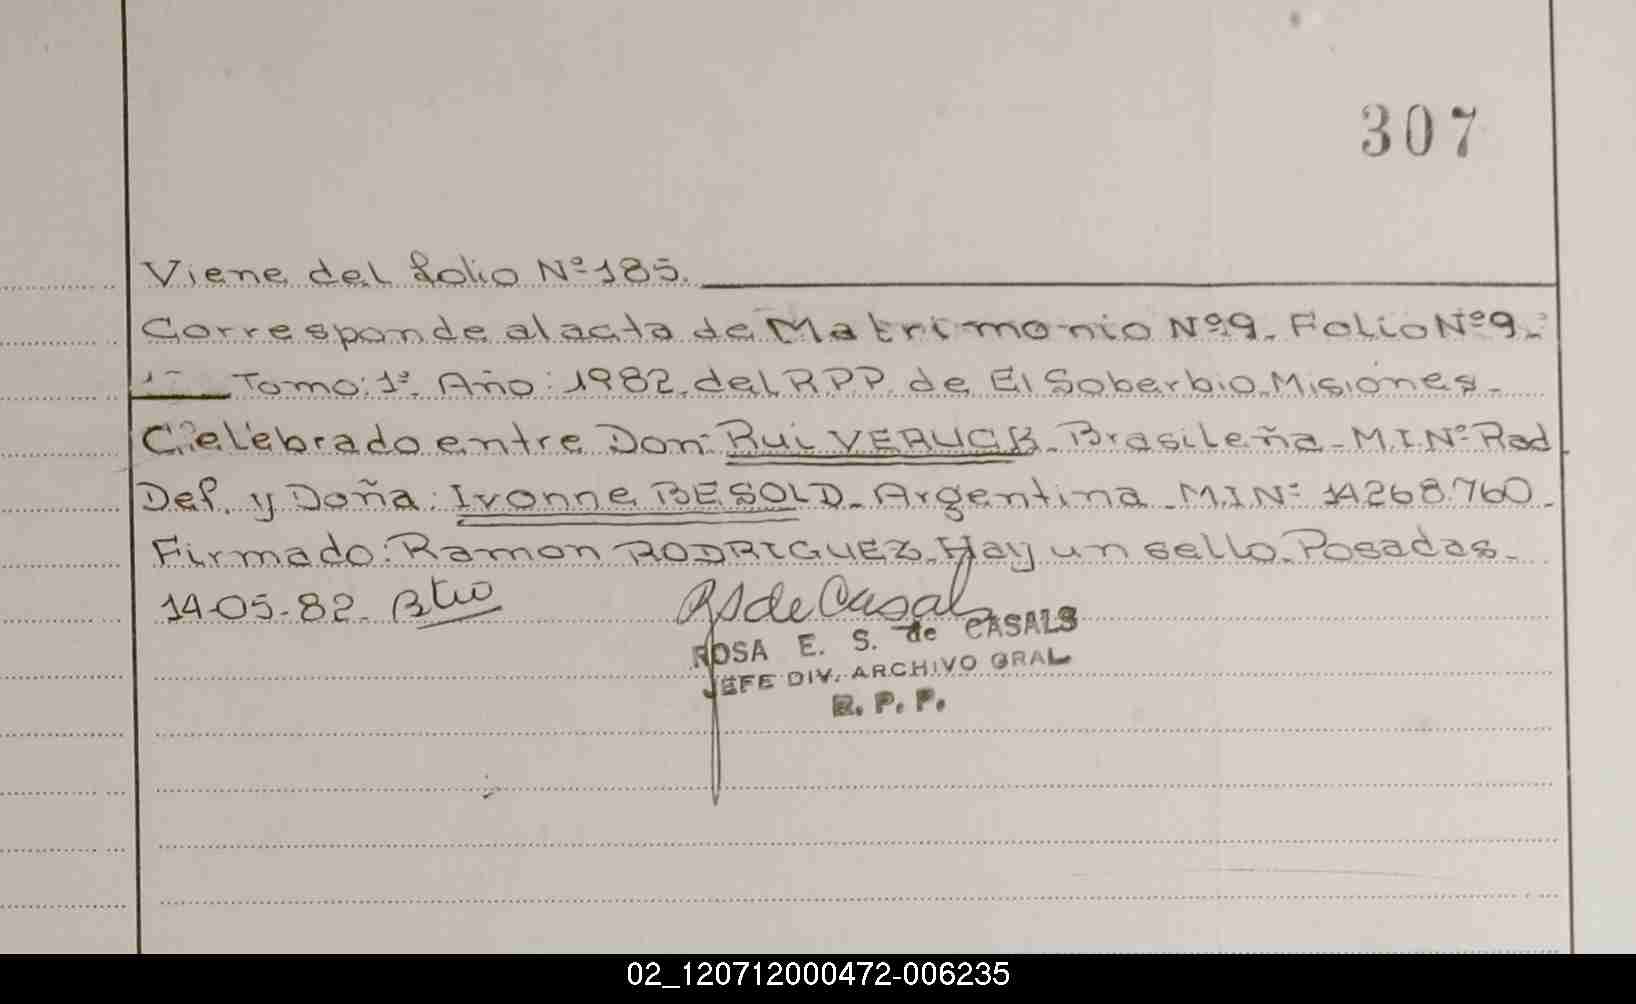 307
Viene del folio Nº 185.
Corresponde al acta de Matrimonio Nº 9. Folio Nº 9.
Tomo: 1º. Año: 1982. del RPP. de El Soberbio. Misiones.
Celebrado entre Don: Rui VERUCK. Brasileña. M.I.Nº Rad
Def. y Doña: Ivonne BESOLD. Argentina. M.I.Nº: 14268.760.
Firmado: Ramon RODRIGUEZ. Hay un sello. Posadas.
14-05-82.
RS de Casals
ROSA E. S. de CASALS
JEFE DIV. ARCHIVO GRAL
R. P. P.
02_120712000472-006235